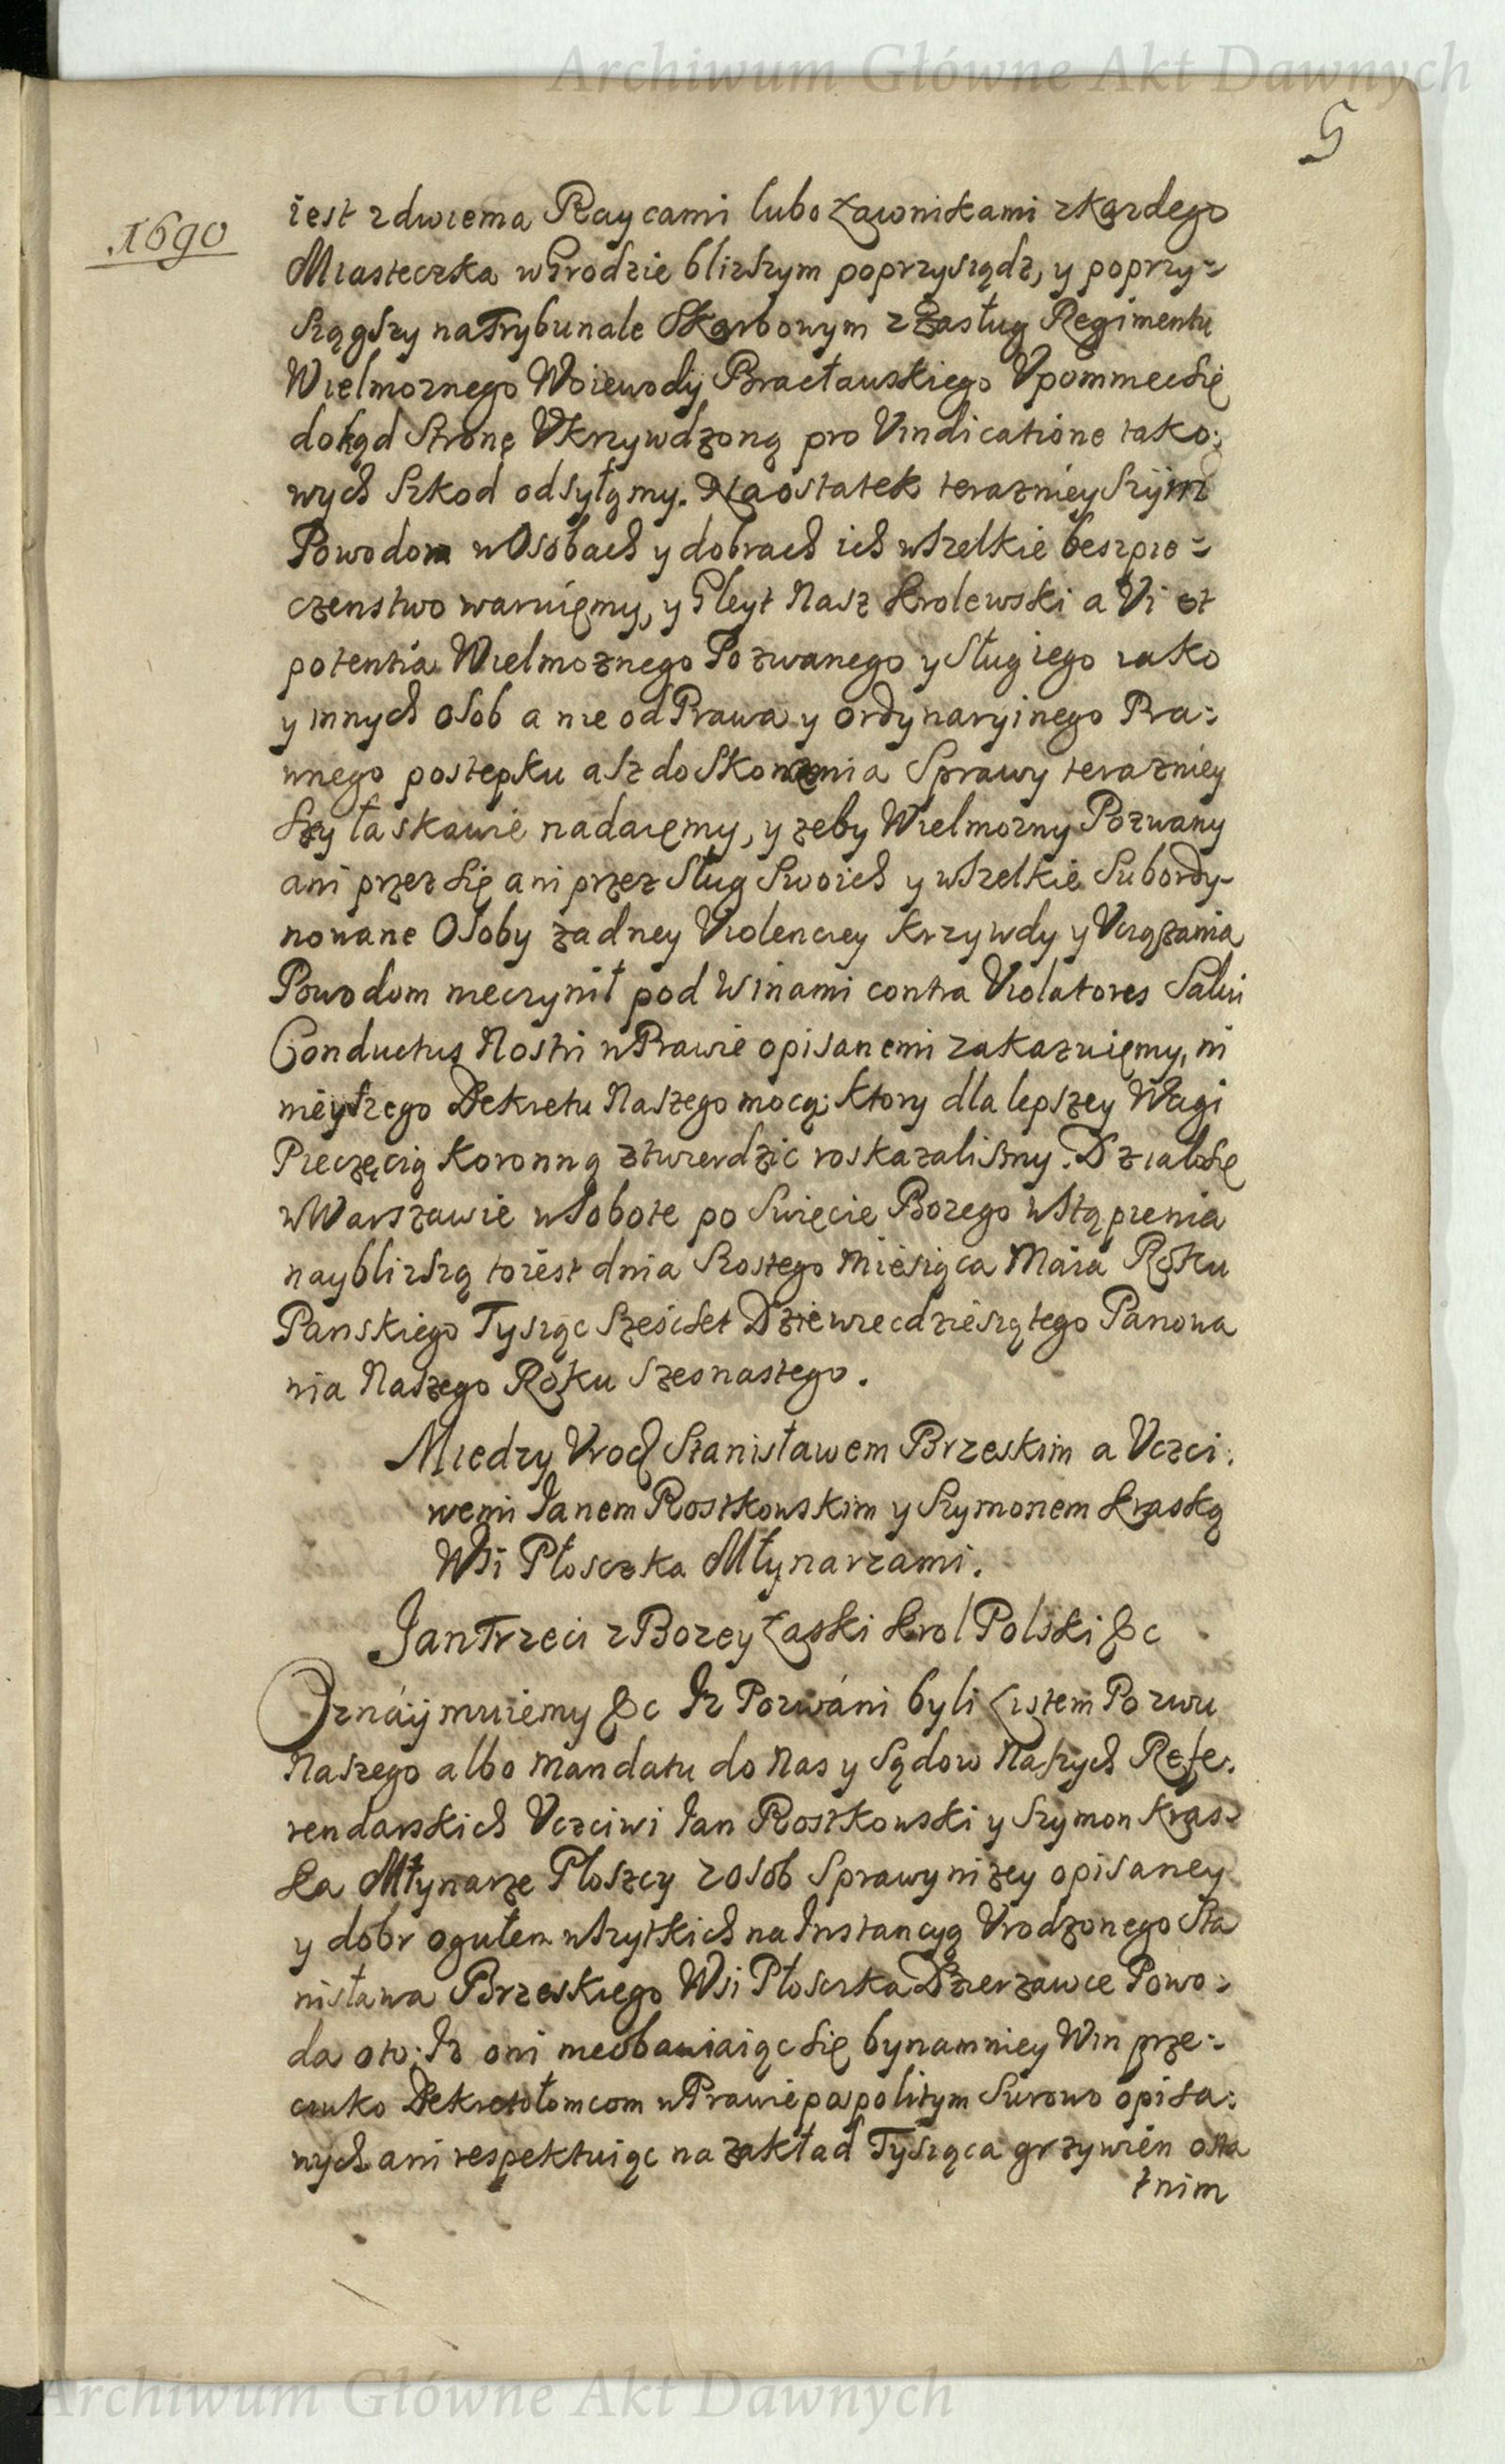 Archiwum Główne Akt Dawnych
5
1690
iest z dwiema Raycami lubo Ławnikami z kazdego
Miasteczka w Grodzie blizszym poprzysiądz, y poprzy-
siągszy na Trybunale Skarbowym z Zasług Regimentu
Wielmoznego Woiewody Bracławskiego Vpomniec się
dokąd Stronę Vkrzywdzoną pro Vindicatione tako-
wych Szkod odsyłamy. Naostatek teraznieyszym
Powodom w Osobach y dobrach ich wszelkie beszpie-
czenstwo waruięmy, y Gleyt Nasz Krolewski a Vi et
potentia Wielmoznego Pozwanego y Sług iego iako
y innych osob a nie od Prawa y ordynaryinego Pra-
wnego postepku asz do Skonczenia Sprawy terazniey
szey łaskawie nadaięmy, y zeby Wielmozny Pozwany
ani przez się ani przez Sług Swoich y wszelkie Subordy-
nowane Osoby zadney Violencyey krzywdy y Vciązania
Powodom nieczynił pod Winami contra Violatores Salvi
Conductus Nostri w Prawie opisanemi zakazuięmy, ni
nieyszego Dekretu Naszego mocą; ktory dla lepszey Wagi
Pieczęcią Koronną ztwierdzic roskazalismy. Działo się
w Warszawie w Sobote po Swięcie Bozego wstąpienia
nayblizszą toiest dnia Szostego Miesiąca Maia Roku
Panskiego Tysiąc Sześcset Dziewiecdziesiątego Panowa
nia Naszego Roku Szesnastego.
Miedzy Vrodz Stanisławem Brzeskim a Vczci-
wemi Janem Rostkowskim y Szymonem Kraską
Wsi Płosczka Młynarzami.
Jan Trzeci z Bozey Łaski Krol Polski &c
Oznaymuiemy &c Iz Pozwani byli Listem Pozwu
Naszego albo Mandatu do Nas y Sądow Naszych Refe-
rendarskich Vczciwi Jan Rostkowski y Szymon Kras-
ka Młynarze Płoszcy z osob Sprawy nizey opisaney
y dobr ogułem wszytkich na Instancyą Vrodzonego Sta
nisława Brzeskiego Wsi Płosczka Dzierzawce Powo-
da oto; Iz oni nieobawiaiąc się bynamniey Win prze-
ciwko Dekretołomcom w Prawie pospolitym Surowo opisa-
nych ani respektuiąc na zakład Tysiąca grzywien osta
tnim
Archiwum Główne Akt Dawnych